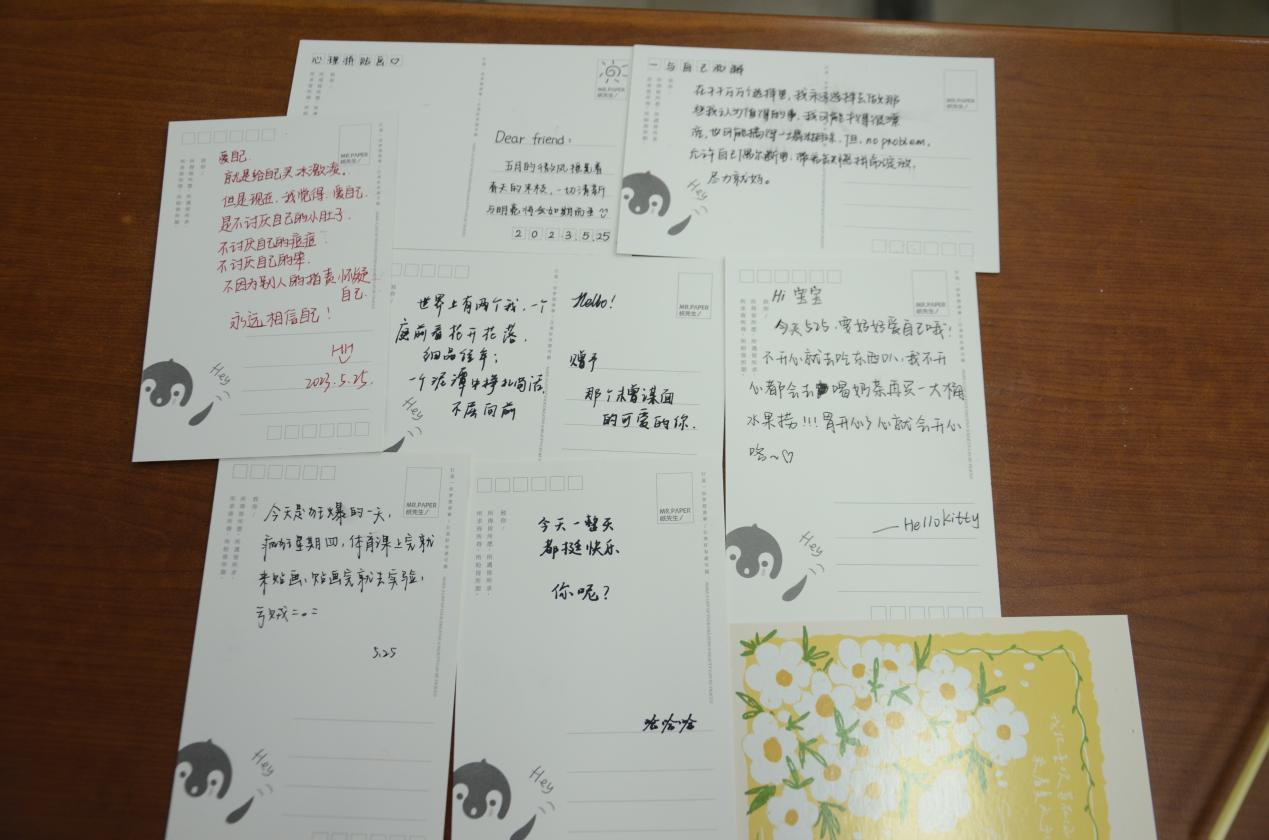 心理拼贴画♡
MR.PAPER
纸先生!
Dear friend:
五月的微风
一切清新
与明亮将会如期而至♡
2023.5.25
一与自己和解
MR.PAPER
纸先生!
在千千万万个选择里,我永远选择去做那
些我认为值得的事,我可能干得很漂
亮,也可能搞得一塌糊涂,但,no problem,
允许自己偶尔断电
尽力就好。
Hey
MR.PAPER
纸先生!
爱自己
就是给自己买冰激凌。
但是现在,我觉得,爱自己
是不讨厌自己的小肚子
不讨厌自己的痘痘
不讨厌自己的笨
不因为别人的指责,怀疑
自己
永远相信自己!
HH
2023.5.25.
Hey
MR.PAPER
纸先生!
世界上有两个我,一个
庭前看花开花落,
细品经年;
一个泥潭中挣扎苟活,
不屈向前
Hello!
赠予
那个未曾谋面
的可爱的你.
Hey
MR.PAPER
纸先生!
Hi 宝宝
今天525,要好好爱自己哦!
不开心就去吃东西叭,我不开
心都会去喝奶茶再买一大桶
水果捞!!!胃开心了心就会开心
哈~♡
—Hello Kitty
Hey
MR.PAPER
纸先生!
今天是
爆的一天,
疯狂星期四,体育课上完就
来贴画,贴画完就去实验,
5.25
Hey
MR.PAPER
纸先生!
今天一整天
都挺快乐
你呢?
哈哈哈
Hey